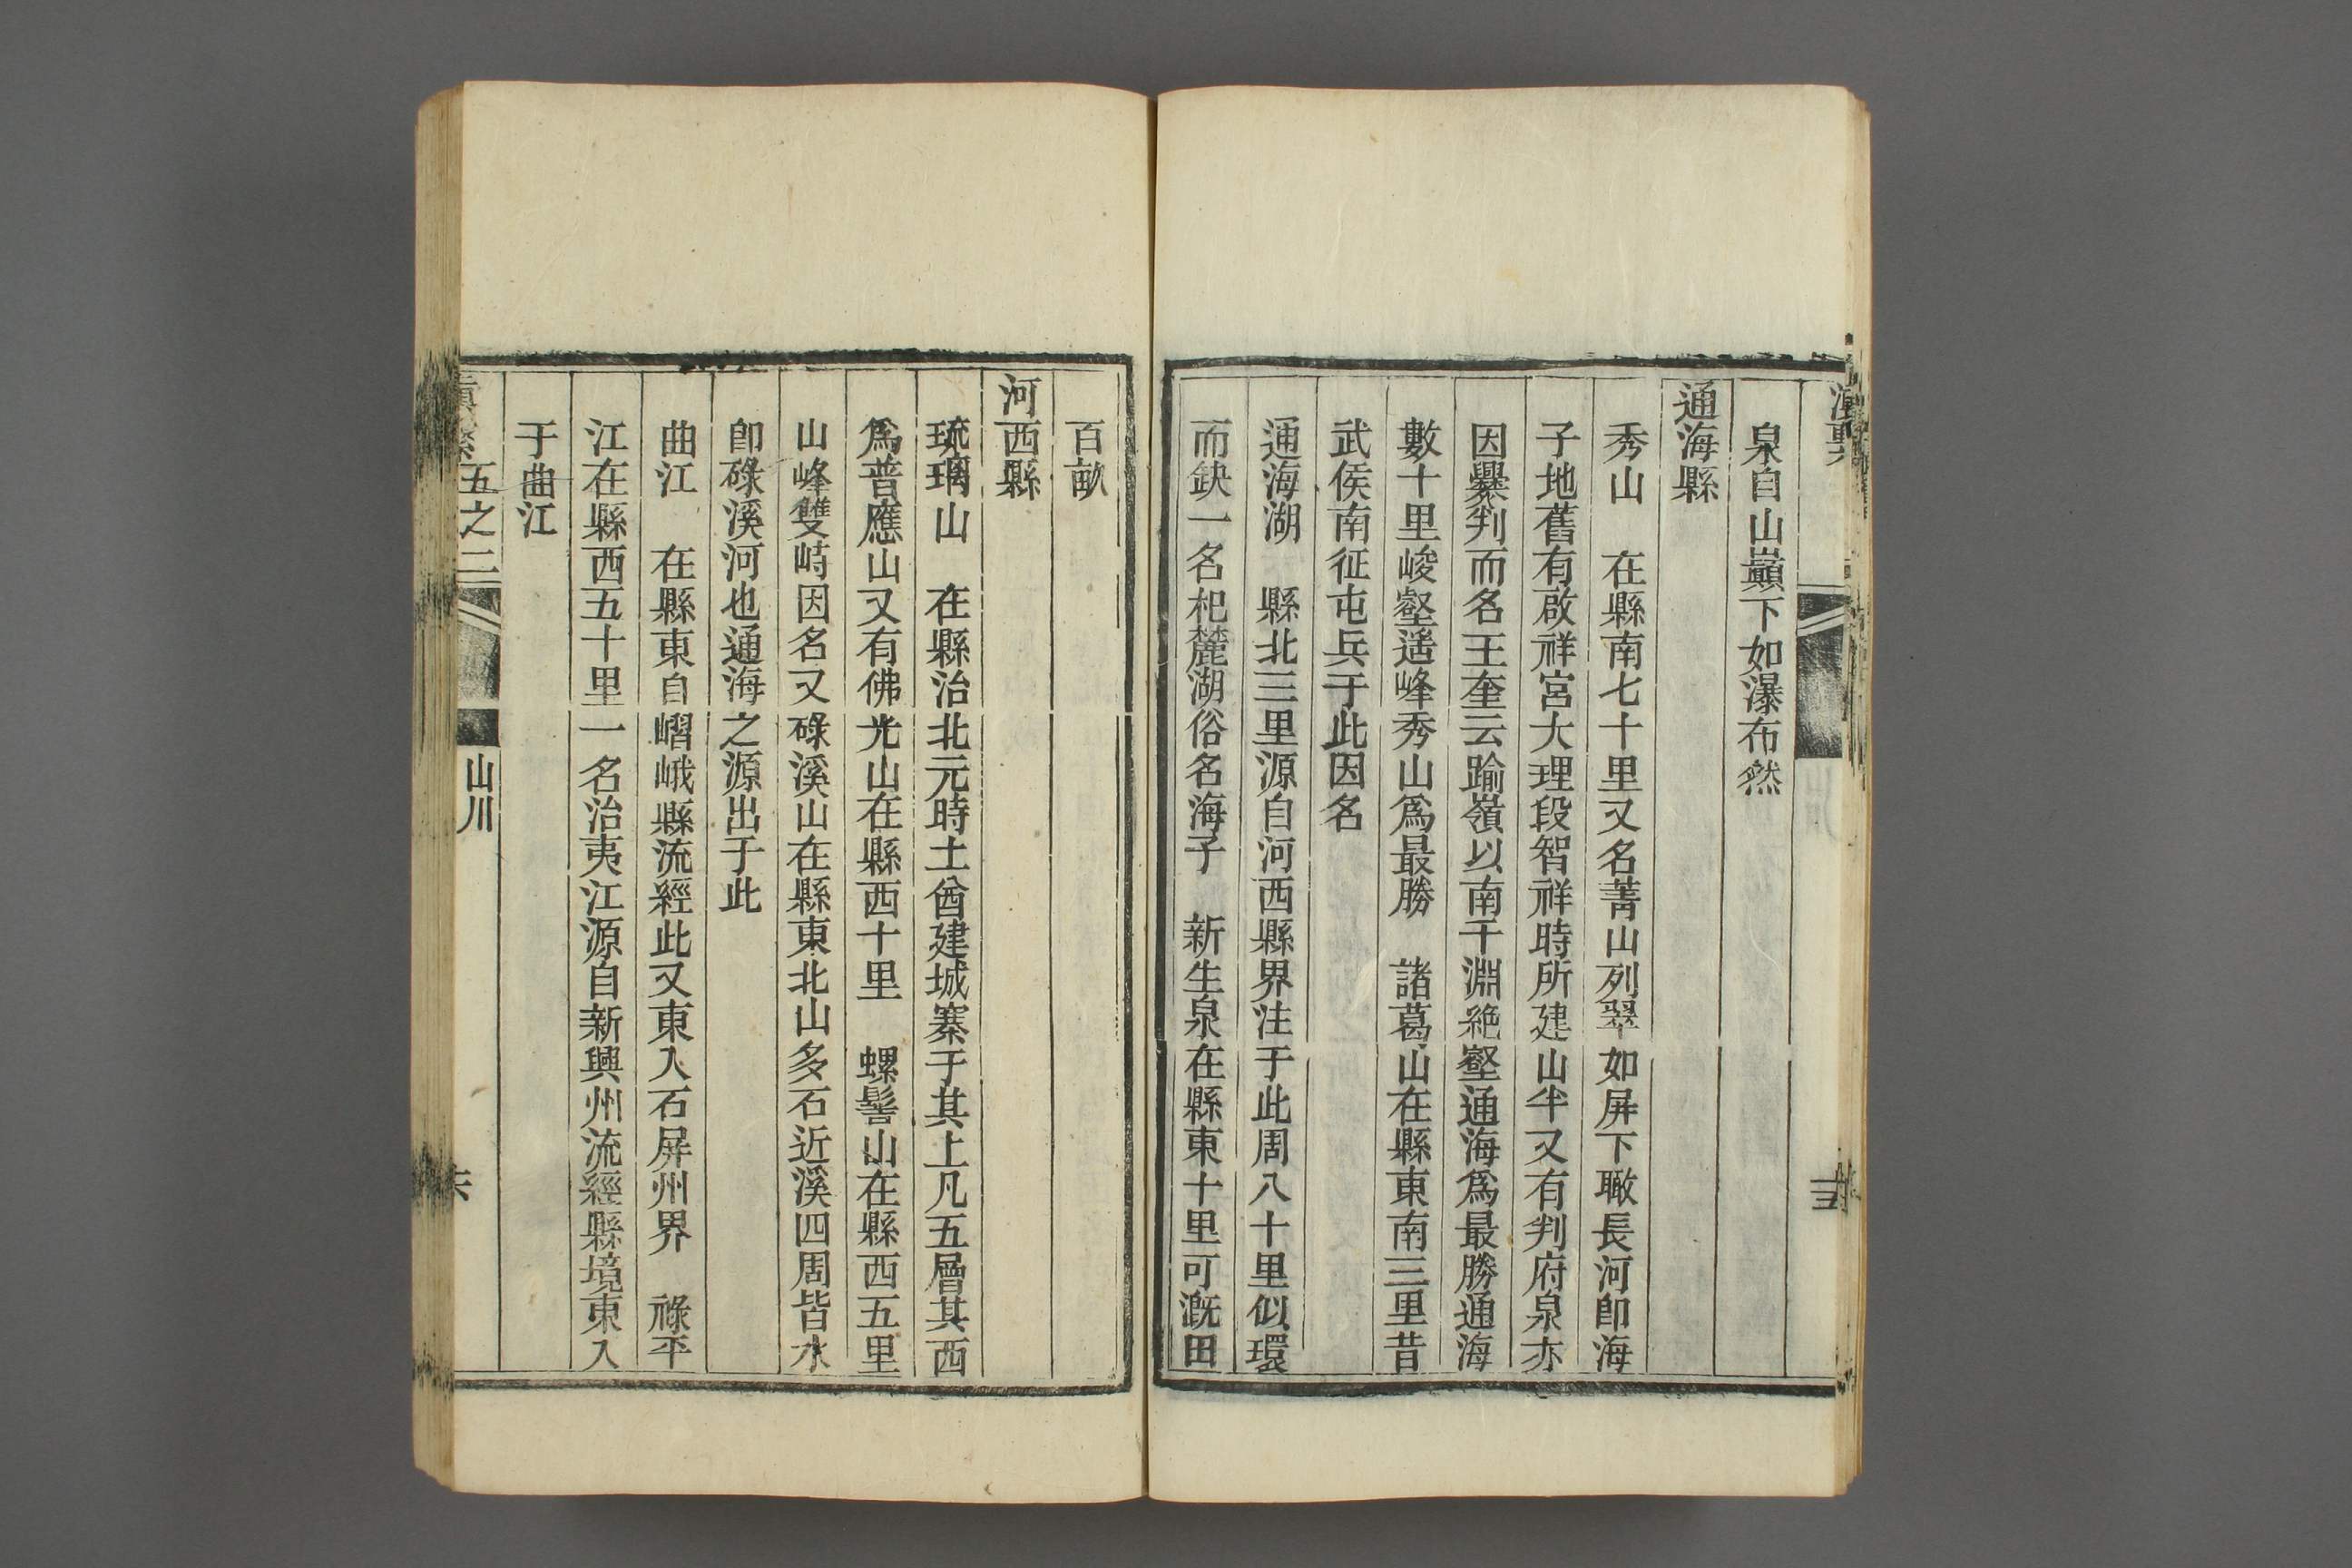 泉自山巔下如瀑布然
通海縣
秀山　在縣南七十里又名菁山列翠如屏下瞰長河卽海
子地舊有啟祥宮大理段智祥時所建山半又有判府泉亦
因爨判而名王奎云踰嶺以南千淵絶壑通海爲最勝通海
數十里峻壑遥峰秀山爲最勝　諸葛山在縣東南三里昔
武侯南征屯兵于此因名
通海湖　縣北三里源自河西縣界注于此周八十里似環
而缺一名杞麓湖俗名海子　新生泉在縣東十里可溉田
百畝
河西縣
琉璃山　在縣治北元時土酋建城寨于其上凡五層其西
爲普應山又有佛光山在縣西十里　螺髻山在縣西五里
山峰雙峙因名又碌溪山在縣東北山多石近溪四周皆水
卽碌溪河也通海之源出于此
曲江　在縣東自嶍峨縣流經此又東入石屏州界　祿平
江在縣西五十里一名治夷江源自新興州流經縣境東入
于曲江
五之二
山川